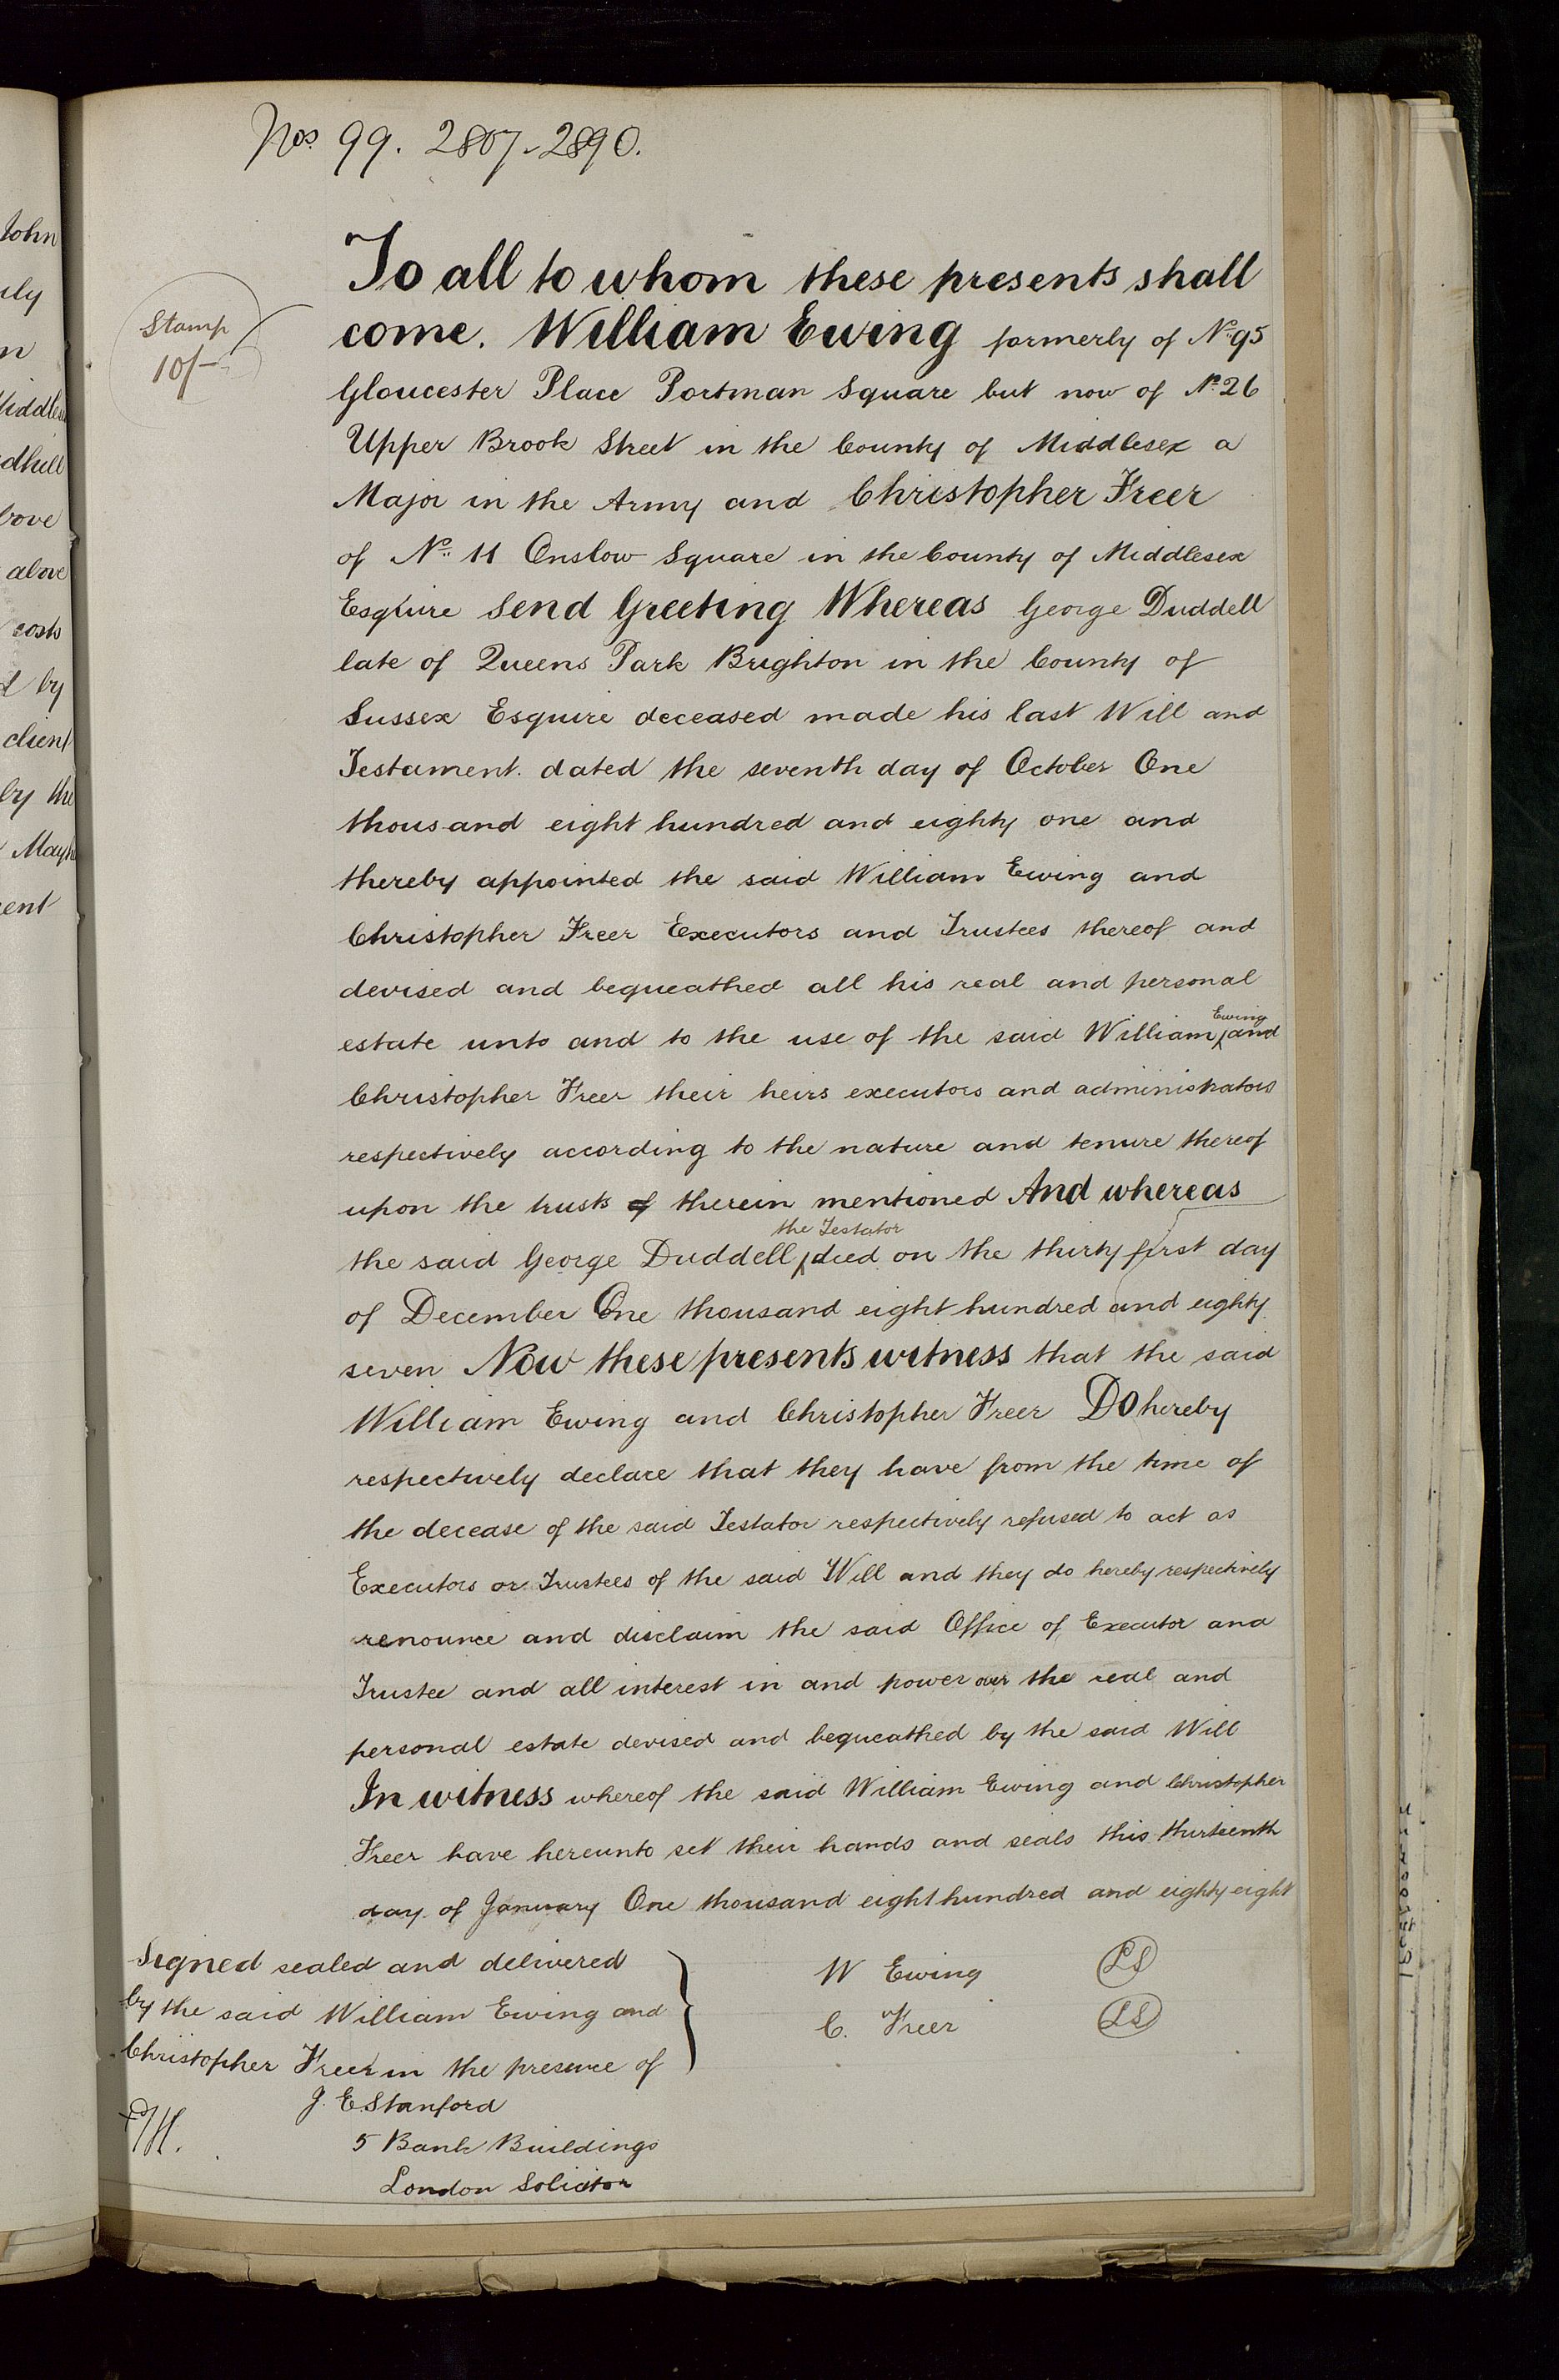 Nos. 99. 2807-2890.
Stamp
10/-
To all to whom these presents shall
come. William Ewing formerly of No. 95
Gloucester Place Portman Square but now of No. 26
Upper Brook Street in the County of Middlesex a
Major in the Army and Christopher Freer
of No. 11 Onslow Square in the County of Middlesex
Esquire Send Greeting Whereas George Duddell
late of Queens Park Brighton in the County of
Sussex Esquire deceased made his last Will and
Testament. dated the seventh day of October One
thousand eight hundred and eighty one and
thereby appointed the said William Ewing and
Christopher Freer Executors and Trustees thereof and
devised and bequeathed all his real and personal
estate unto and to the use of the said William Ewing and
Christopher Freer their heirs executors and administrators
respectively according to the nature and tenure thereof
upon the trusts of therein mentioned And whereas
the said George Duddell the Testator died on the thirty first day
of December One thousand eight hundred and eighty
seven Now these presents witness that the said
William Ewing and Christopher Freer Do hereby
respectively declare that they have from the time of
the decease of the said Testator respectively refused to act as
Executors or Trustees of the said Will and they do hereby respectively
renounce and disclaim the said Office of Executor and
Trustee and all interest in and power over the real and
personal estate devised and bequeathed by the said Will
In witness whereof the said William Ewing and Christopher
Freer have hereunto set their hands and seals this thirteenth
day of January One thousand eight hundred and eighty eight
Signed sealed and delivered
by the said William Ewing and
Christopher Freer in the presence of
J. E Stanford
5 Bank Buildings
London Solicitor
W Ewing LS
C. Freer LS